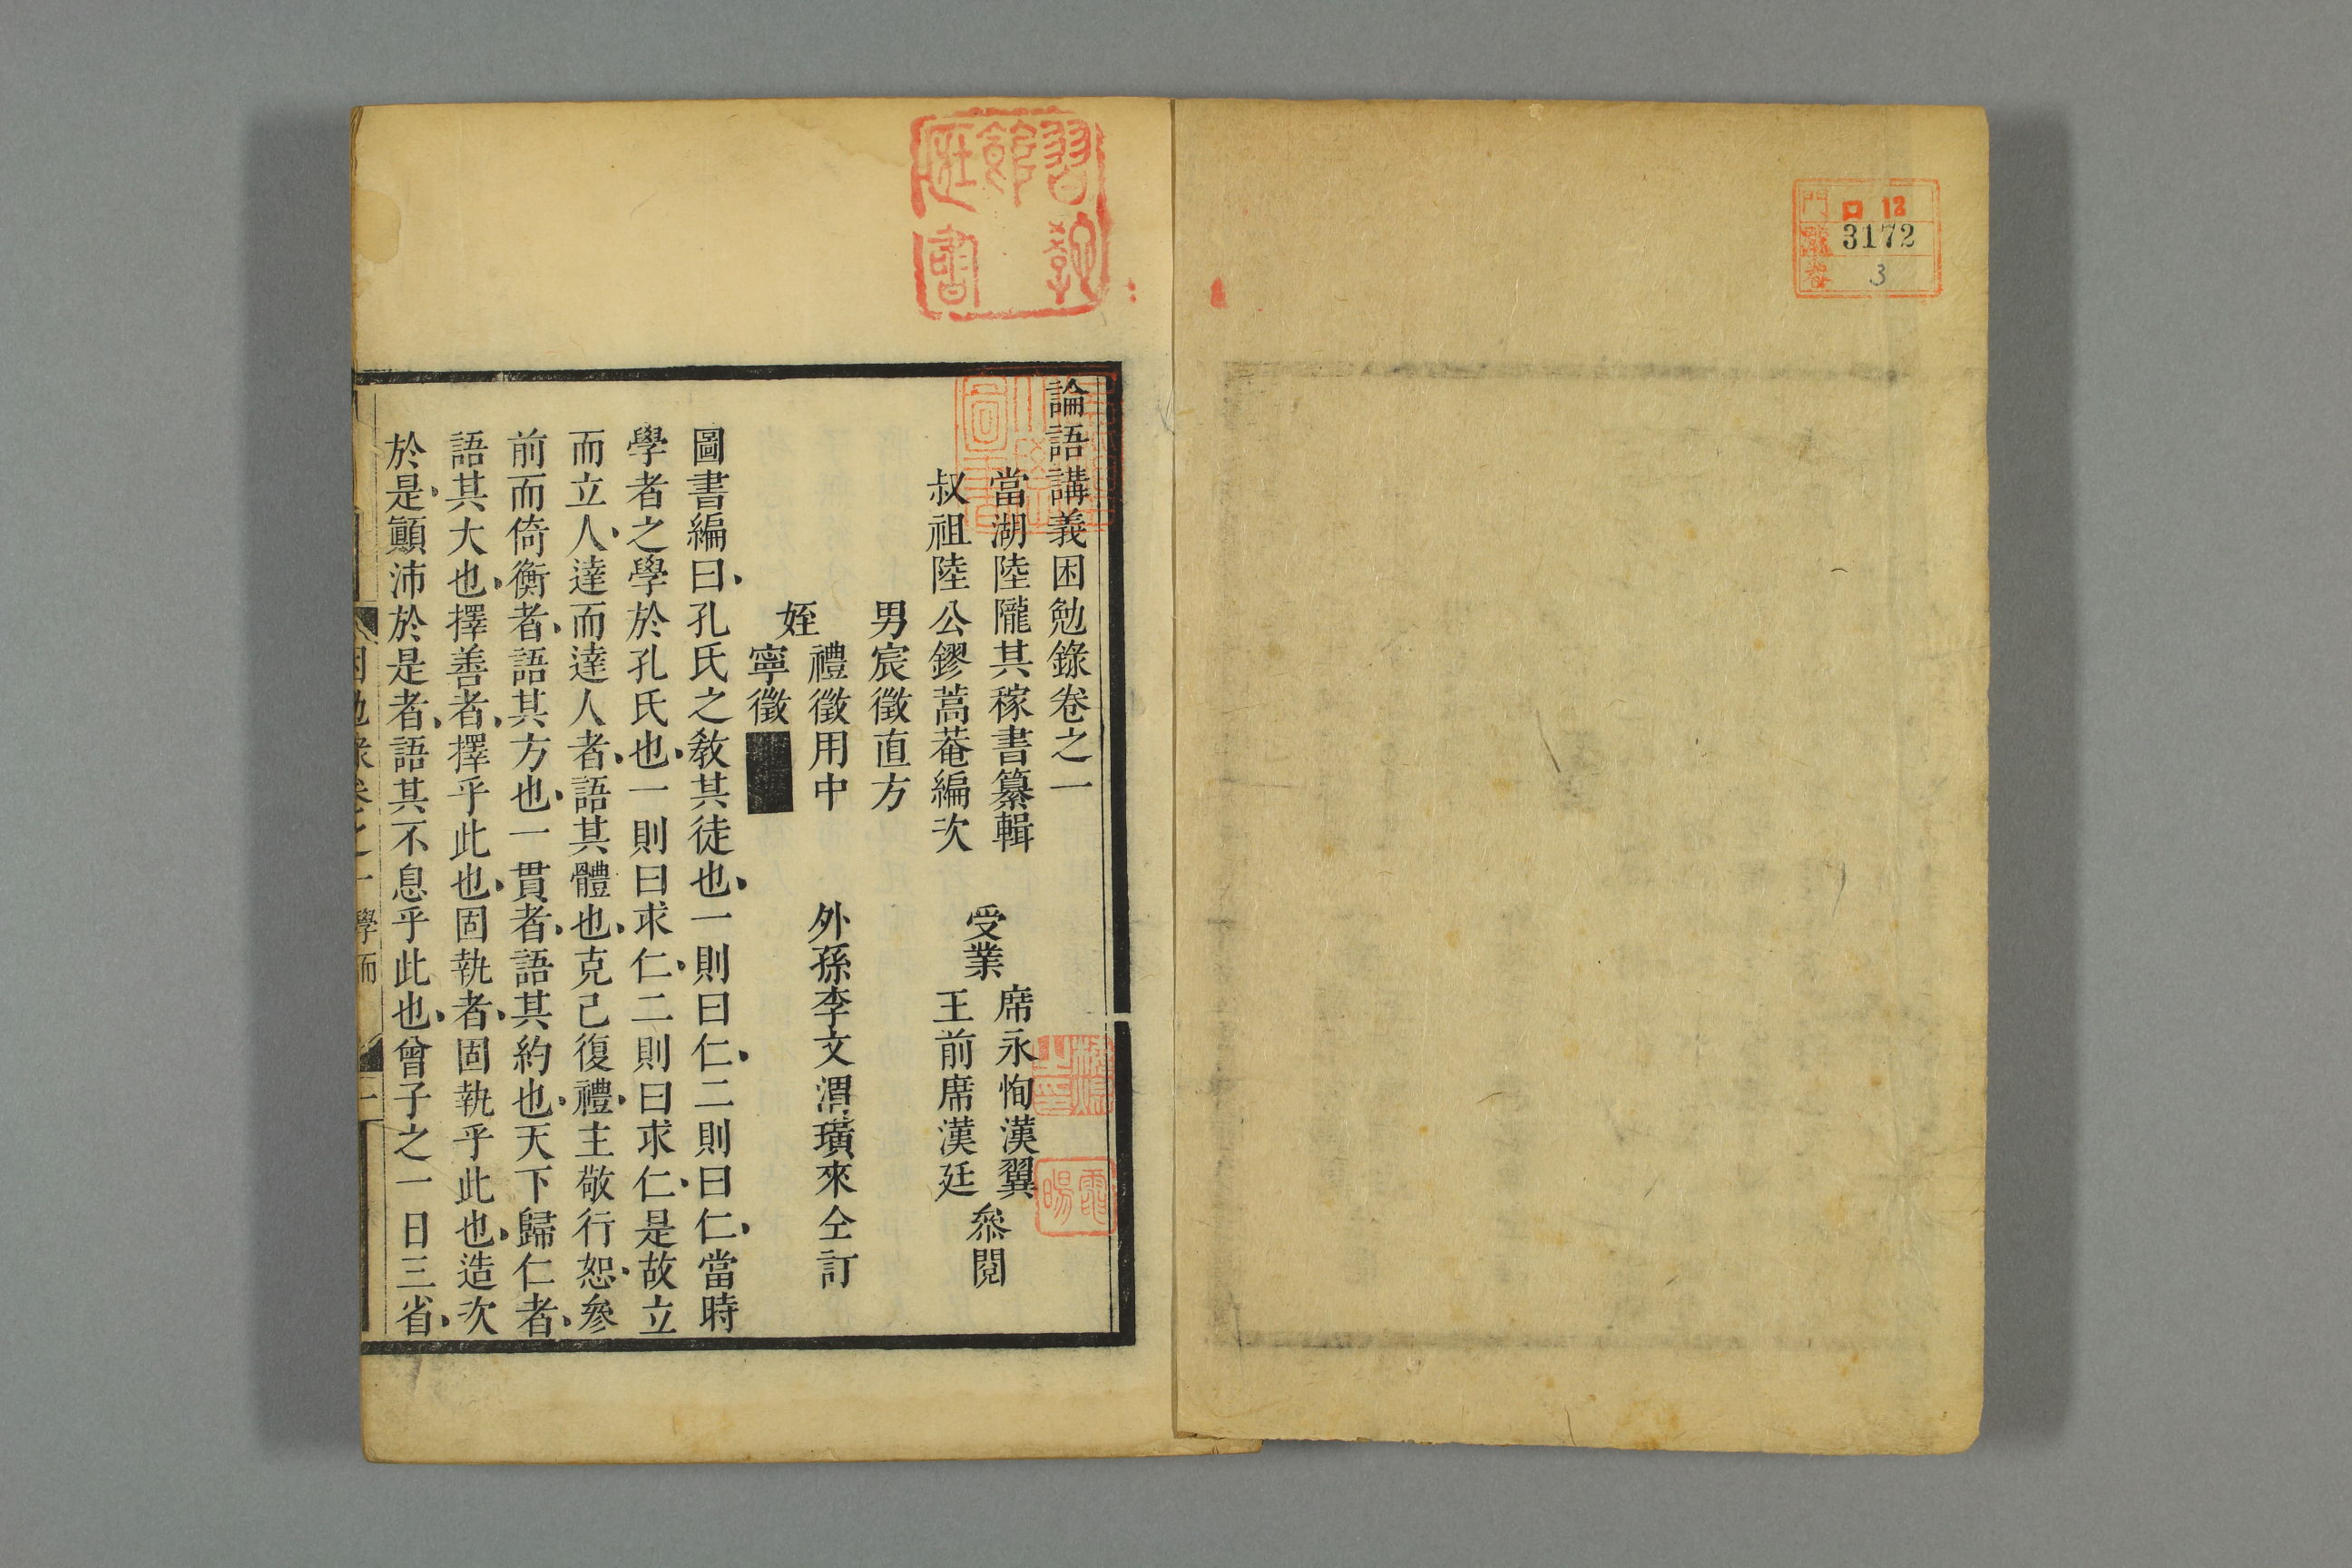 門 口 12
號 3172
卷 3
論語講義困勉錄卷之一
當湖陸隴其稼書纂輯
叔祖陸公鏐蒿菴編次
受業
席永恂漢翼
王前席漢廷
叅閱
男宸徵直方
姪
禮徵用中
寧徵
外孫李文渭璜來仝訂
圖書編曰孔氏之敎其徒也一則曰仁二則曰仁當時
學者之學於孔氏也一則曰求仁二則曰求仁是故立
而立人達而達人者語其體也克己復禮主敬行恕參
前而倚衡者語其方也一貫者語其約也天下歸仁者
語其大也擇善者擇乎此也固執者固執乎此也造次
於是顚沛於是者語其不息乎此也曾子之一日三省
困勉錄卷之一 學而 一